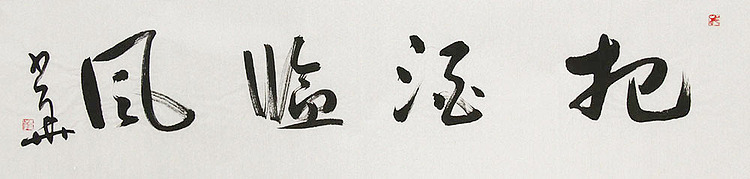 把酒临风